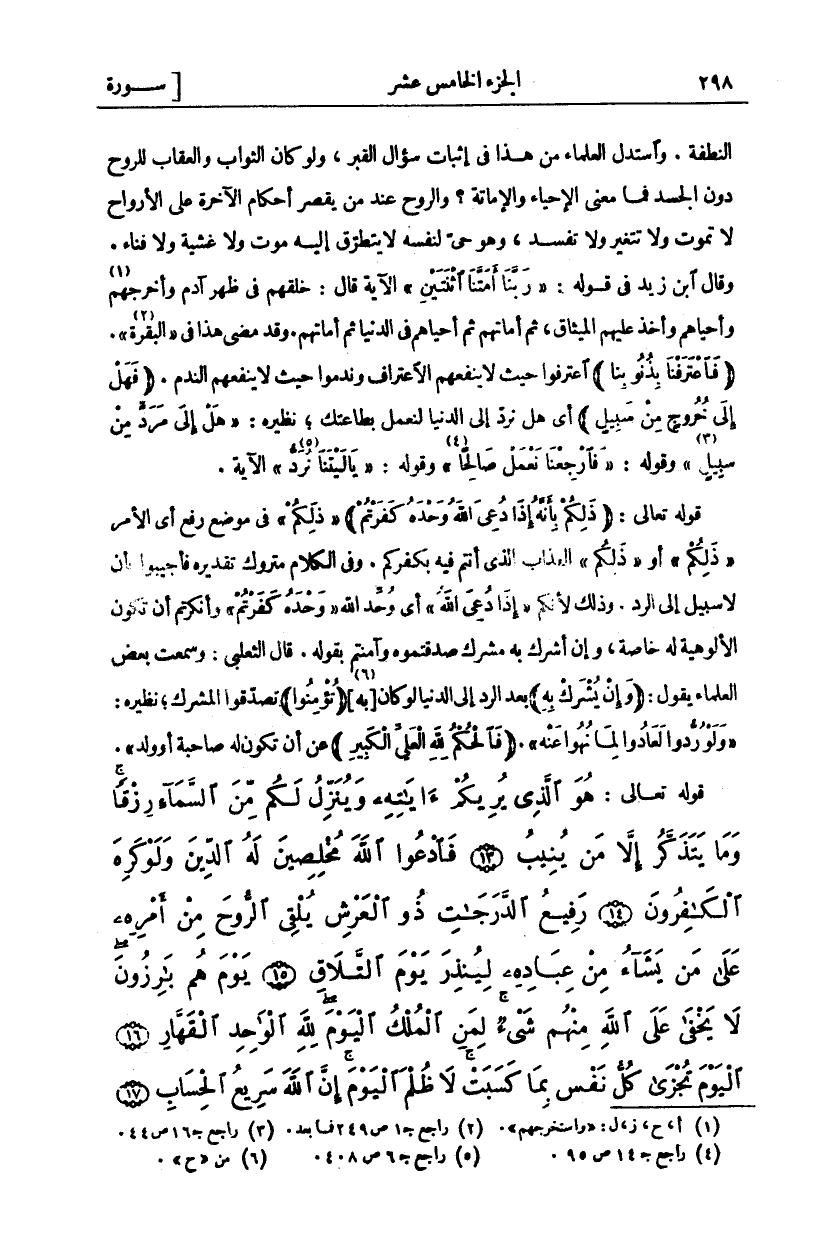 ٢٩٨ الجزء الخامس عشر [ سـورة
النطفة . وٱستدل العلماء من هـذا فى إثبات سؤال القبر ، ولو كان الثواب والعقاب للروح
دون الجسد فمـا معنى الإحياء والإماتة ؟ والروح عند من يقصر أحكام الآخرة على الأرواح
لا تموت ولا تتغير ولا تفسـد ، وهو حىّ لنفسه لا يتطرّق إليـه موت ولا غشية ولا فناء .
وقال ٱبن زيد فى قـوله : « رَبَّنَا أَمَتَّنَا ٱثْنَتَيْنِ » الآية قال : خلقهم فى ظهر آدم وأخرجهم (١)
وأحياهم وأخذ عليهم الميثاق ، ثم أماتهم ثم أحياهم فى الدنيا ثم أماتهم. وقد مضى هذا فى « البقرة » (٢) .
﴿ فَٱعْتَرَفْنَا بِذُنُوبِنا ﴾ ٱعترفوا حيث لاينفعهم الٱعتراف وندموا حيث لاينفعهم الندم . ﴿ فَهَلْ
إِلَى خُرُوجٍ مِنْ سَبِيلٍ ﴾ أى هل نردّ إلى الدنيا لنعمل بطاعتك ؛ نظيره : « هَلْ إِلَى مَرَدٍّ مِنْ
سبِيلٍ (٣) » وقوله : « فَٱرْجِعْنَا نَعْمَلْ صَالِحًا (٤) » وقوله : « يَالَيْتَنَا نُرَدُّ (٥) » الآية .
قوله تعالى : ﴿ ذَلِكُمْ بِأَنَّهُ إِذَا دُعِىَ اللهُ وَحْدَهُ كَفَرْتُمْ ﴾ « ذَلِكُمْ » فى موضع رفع أى الأمر
« ذَلِكُمْ » أو « ذَلِكُمْ » العذاب الذى أنتم فيه بكفركم . وفى الكلام متروك تقديره فأجيبوا بأن
لاسبيل إلى الرد . وذلك لأنكم « إِذَا دُعِىَ اللهُ » أى وُحِّد الله « وَحْدَهُ كَفَرْتُمْ » وأنكرتم أن تكون
الألوهية له خاصة ، و إن أشرك به مشرك صدقتموه وآمنتم بقوله . قال الثعلبى : وسمعت بعض
العلماء يقول : ﴿ وَإِنْ يُشْرَكْ بِهِ ﴾ بعد الرد إلى الدنيا لو كان [به] (٦) ﴿ تُؤْمِنُوا ﴾ تصدّقوا المشرك ؛ نظيره :
« وَلَوْ رُدُّوا لَعَادُوا لِمَا نُهُوا عَنْهُ » . ﴿ فَٱلْحُكْمُ لِلَّهِ الْعَلِىِّ الْكَبِيرِ ﴾ عن أن تكون له صاحبة أو ولد » .
قوله تعـالى : هُوَ ٱلَّذِى يُرِيكُمْ ءَايَـٰتِهِۦ وَيُنَزِّلُ لَـكُم مِّنَ ٱلسَّمَآءِ رِزْقًا ۚ
وَمَا يَتَذَكَّرُ إِلَّا مَن يُنِيبُ ١٣ فَٱدْعُوا ٱللَّهَ مُخْلِصِينَ لَهُ ٱلدِّينَ وَلَوْ كَرِهَ
ٱلْكَـٰفِرُونَ ١٤ رَفِيعُ ٱلدَّرَجَـٰتِ ذُو ٱلْعَرْشِ يُلْقِى ٱلرُّوحَ مِنْ أَمْرِهِۦ
عَلَىٰ مَن يَشَآءُ مِنْ عِبَادِهِۦ لِيُنذِرَ يَوْمَ ٱلتَّلَاقِ ١٥ يَوْمَ هُم بَـٰرِزُونَ ۖ
لَا يَخْفَىٰ عَلَى ٱللَّهِ مِنْهُمْ شَىْءٌ ۚ لِّمَنِ ٱلْمُلْكُ ٱلْيَوْمَ ۖ لِلَّهِ ٱلْوَٰحِدِ ٱلْقَهَّارِ ١٦
ٱلْيَوْمَ تُجْزَىٰ كُلُّ نَفْسٍ بِمَا كَسَبَتْ ۚ لَا ظُلْمَ ٱلْيَوْمَ ۚ إِنَّ ٱللَّهَ سَرِيعُ ٱلْحِسَابِ ١٧
(١) أ، ح، ز، ل : «واستخرجهم» . (٢) راجع جـ١ ص ٢٤٩ فـا بعد . (٣) راجع جـ١٦ ص ٤٤ .
(٤) راجع جـ١٤ ص ٩٥ . (٥) راجع جـ٦ ص ٤٠٨ . (٦) من «ح» .